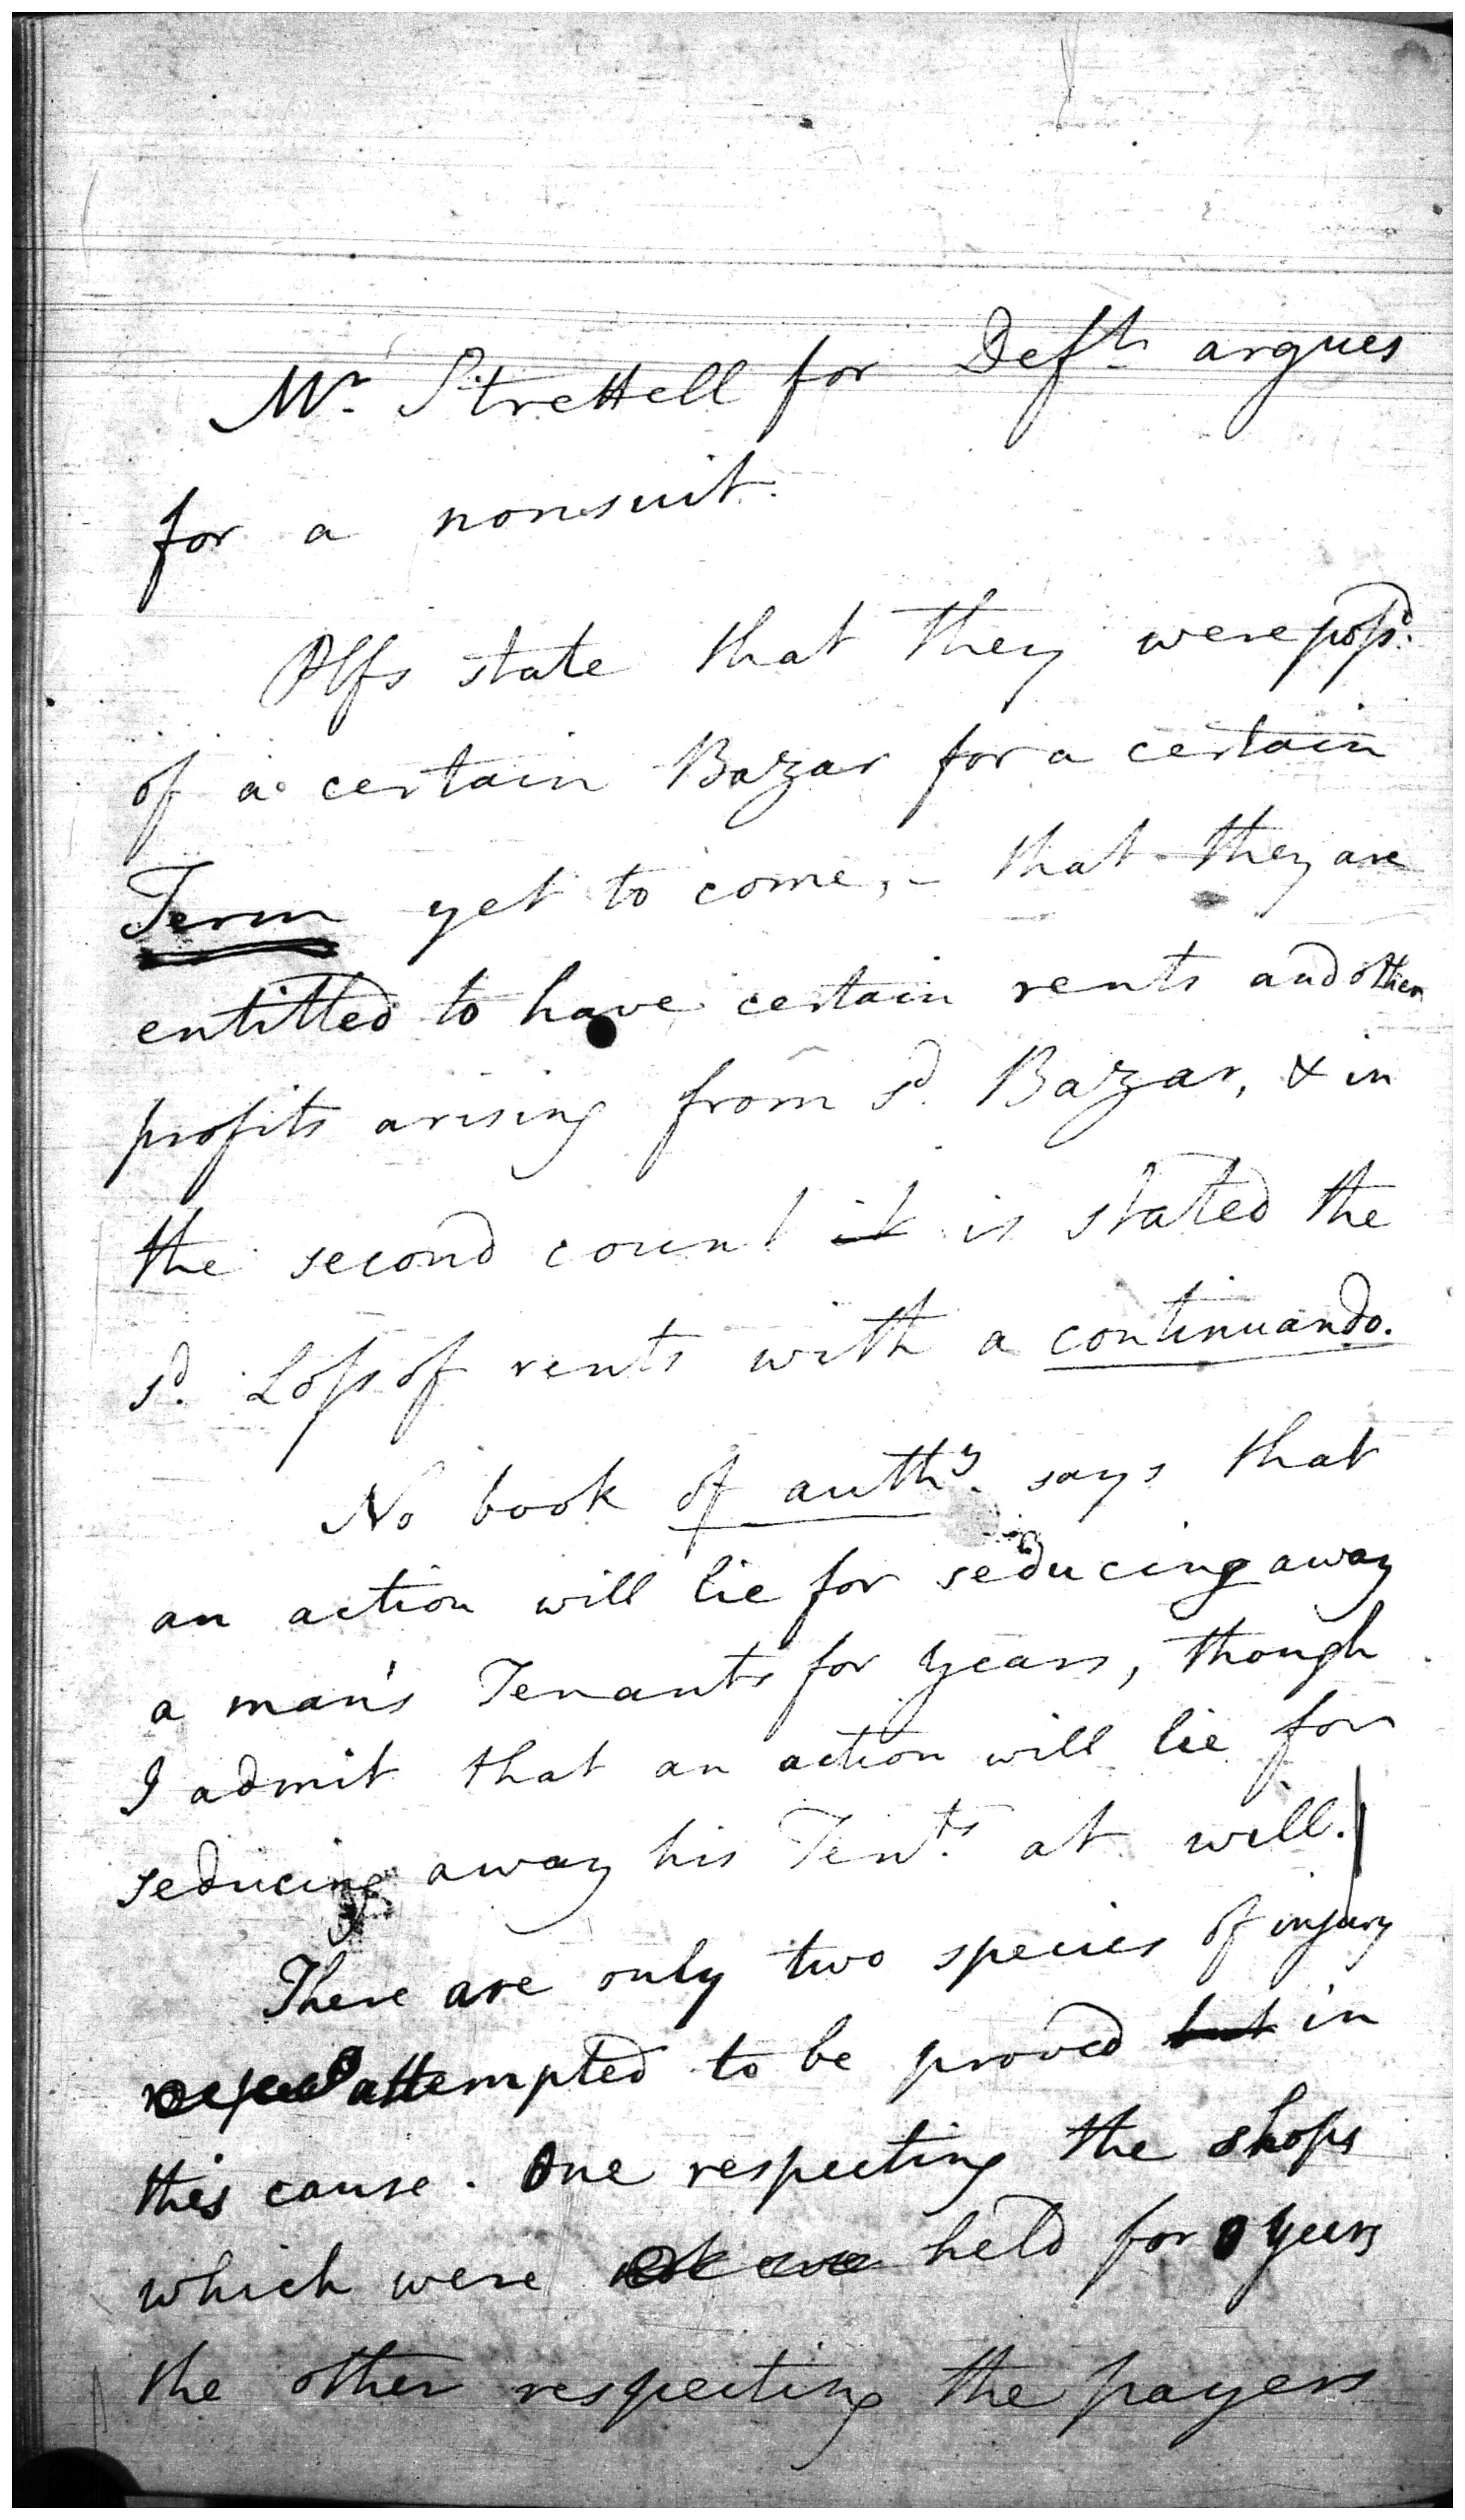 Mr. Strettell for Defts. argues
for a nonsuit.
Plfs state that they were possd.
of a certain Bazar for a certain
Term yet to come, - that they are
entitled to have certain rents and other
profits arising from sd. Bazar, & in
the second count it is stated the
sd. Loss of rents with a continuando.
No book of authy. says that
an action will lie for seducing away
a man's Tenants for years, though
I admit that an action will lie for
seducing away his Tents. at will.
There are only two species of injury
attempted to be proved but in
this cause. One respecting the shops
which were held for years
the other respecting the payers